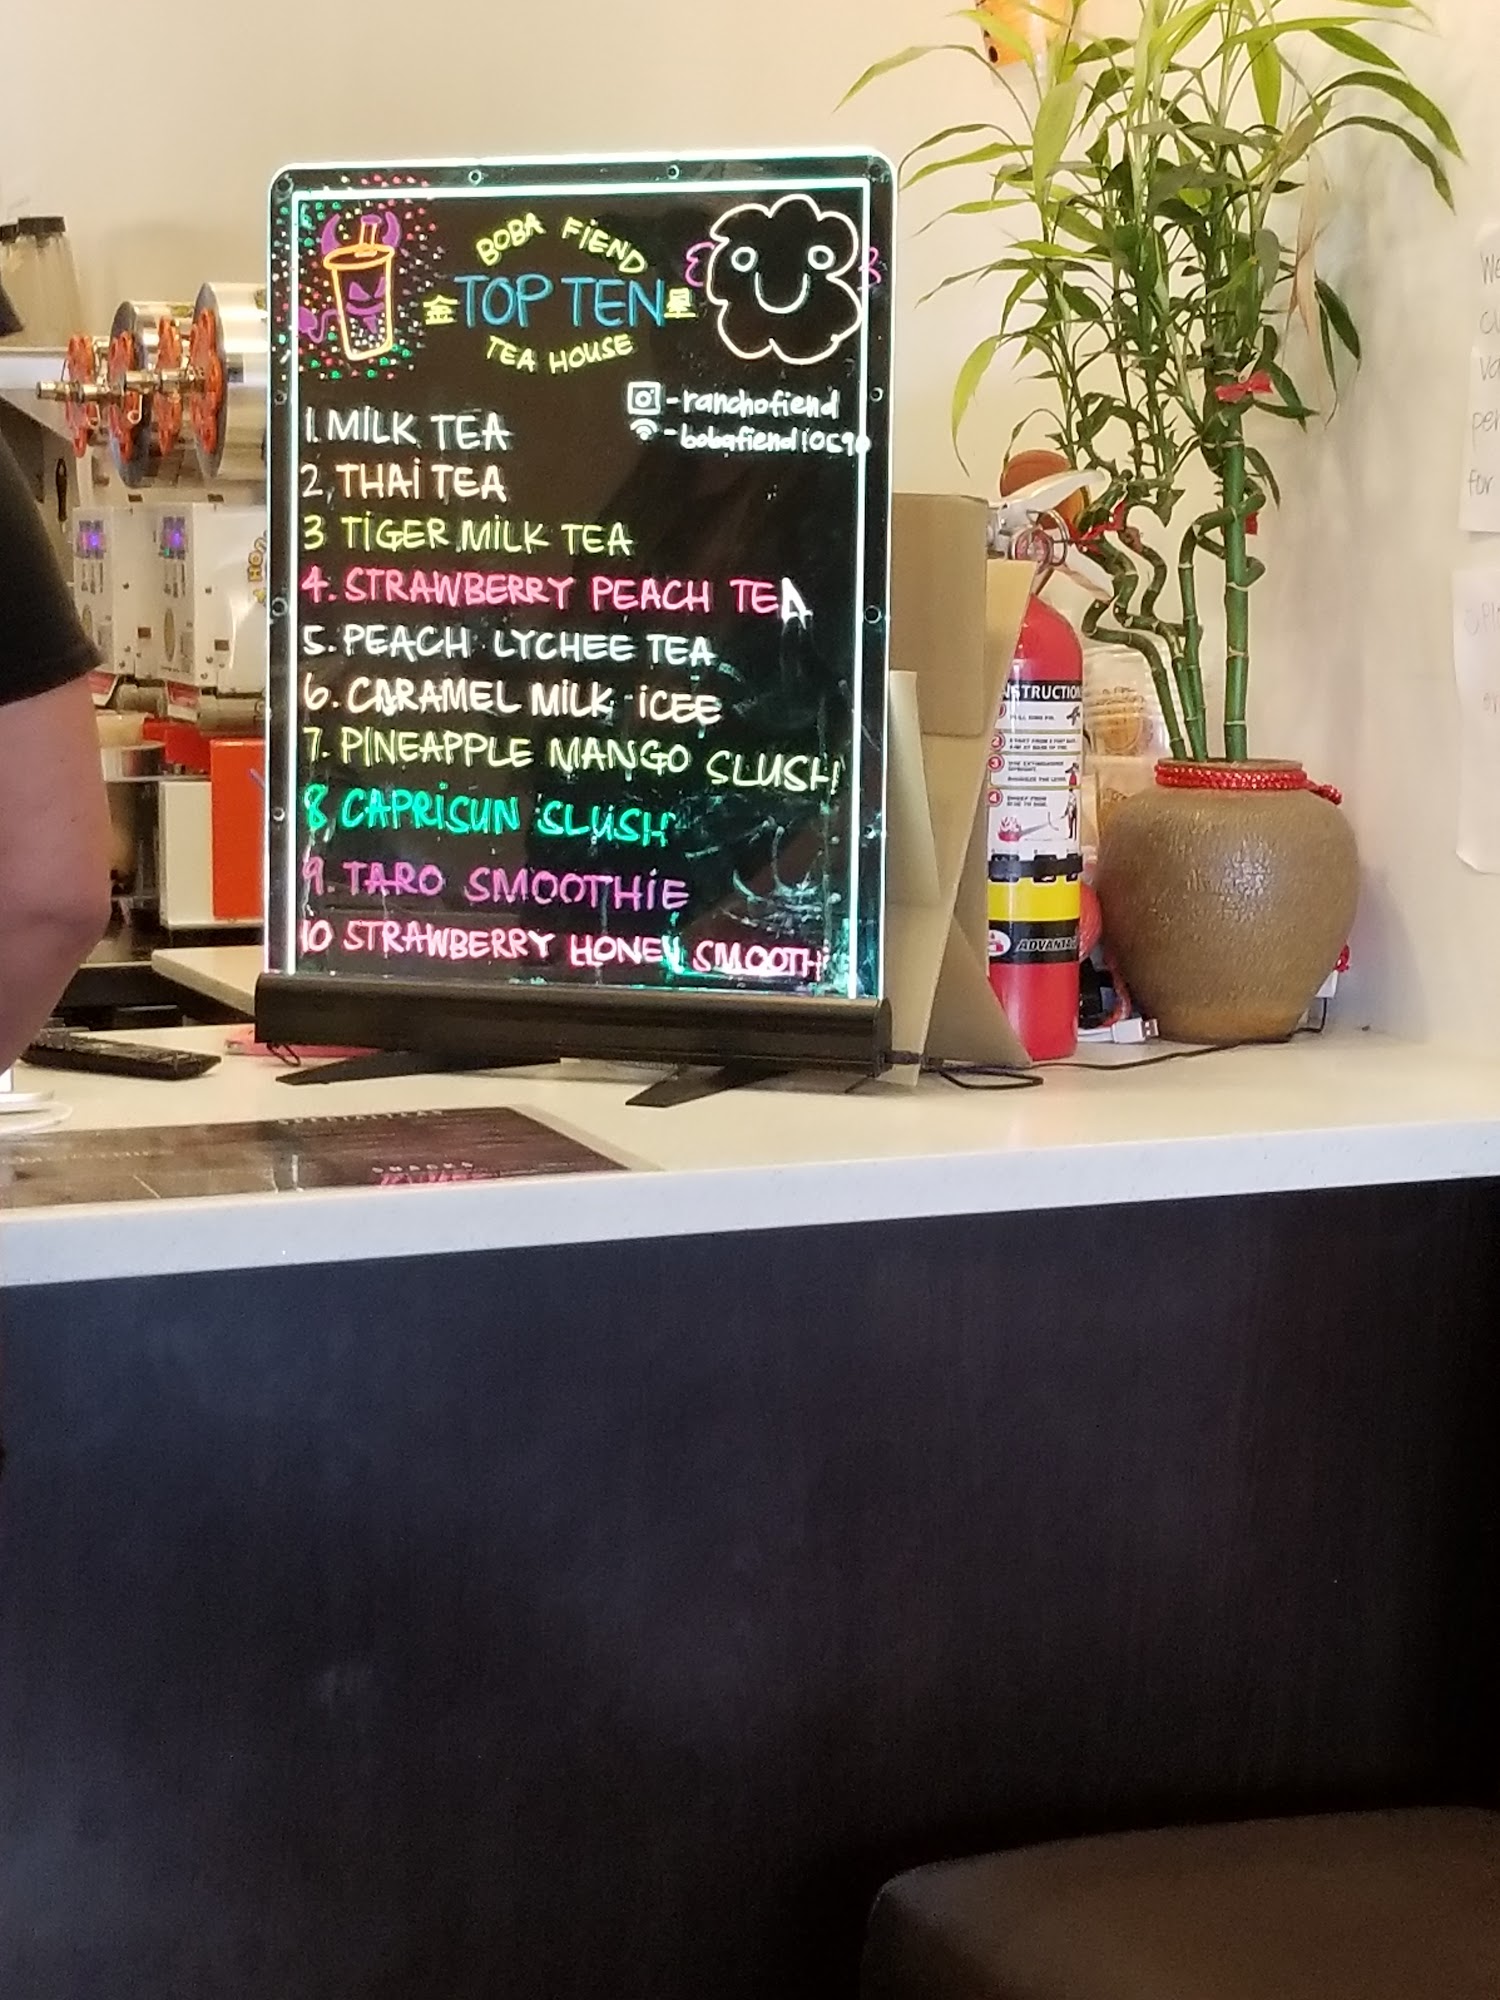 BOBA FiEND
金 TOP TEN 星
TEA HOUSE
-ranchofiend
1. MiLK TEA
2, THAi TEA
3 TiGER MiLK TEA
4. STRAWBERRY PEACH TEA
5. PEACH LYCHEE TEA
6. CARAMEL MiLK iCEE
7. PINEAPPLE MANGO SLUSH
8, CAPRiSUN SLUSH
9. TARO SMOOTHiE
10 STRAWBERRY HONEY SMOOTH
INSTRUCTION
ADVANTA
SNACKS
for